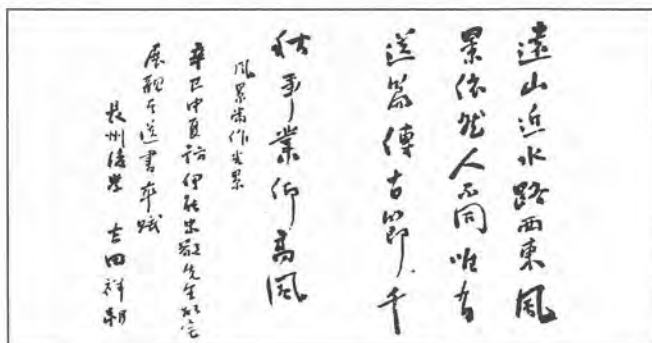 遠山近水路西東風
景依然人不同唯有
遺篇傳古節千
秋事業仰高風
風景当作光景
辛巳中夏訪伊能忠敬先生故宅
展観其遺書卒賦
長州後学 吉田祥朔